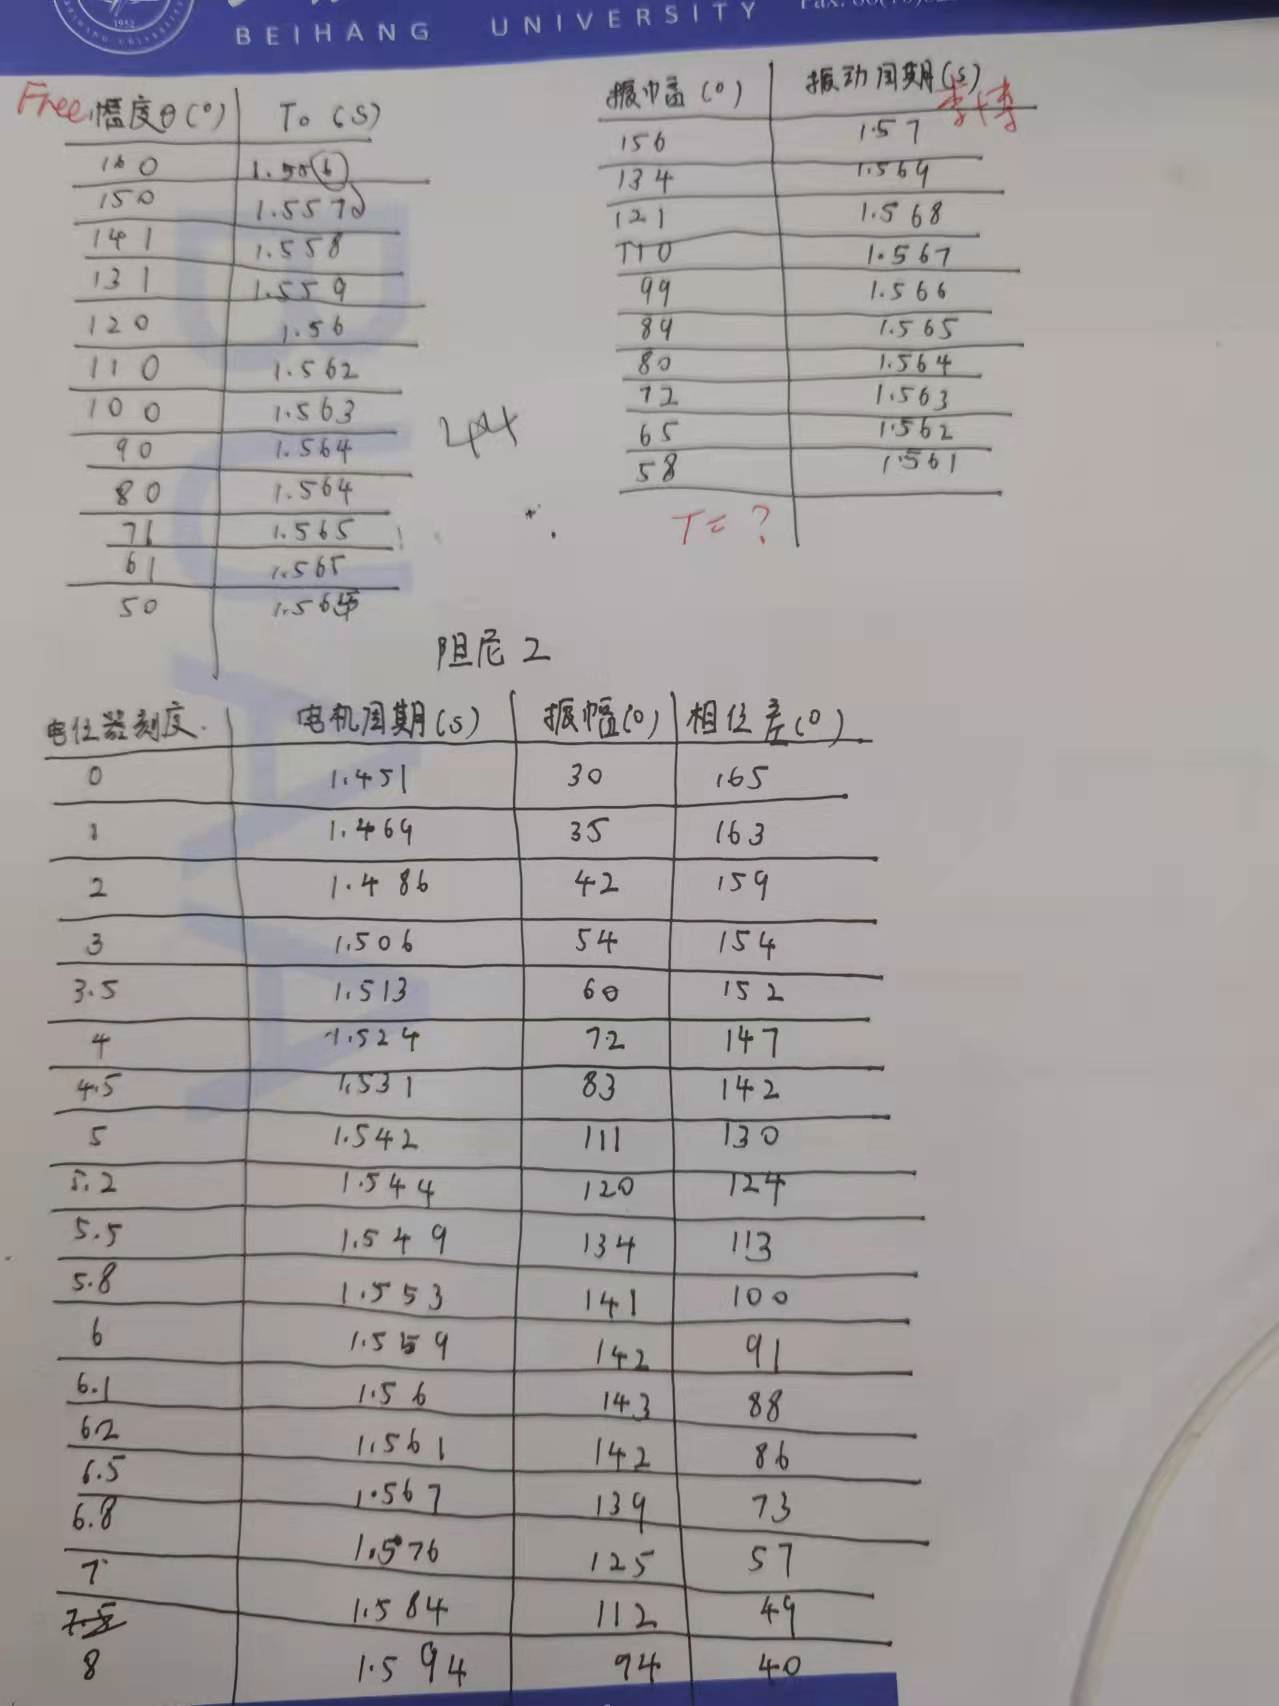 BEIHANG UNIVERSITY
Free 幅度θ(°) T0 (S)
160 1.556
150 1.557
141 1.558
131 1.559
120 1.56
110 1.562
100 1.563
90 1.564
80 1.564
71 1.565
61 1.565
50 1.565
振幅(°) 振动周期(s)
156 1.57
134 1.569
121 1.568
110 1.567
99 1.566
89 1.565
80 1.564
72 1.563
65 1.562
58 1.561
T=?
阻尼2
电位器刻度 电机周期(s) 振幅(°) 相位差(°)
0 1.451 30 165
1 1.469 35 163
2 1.486 42 159
3 1.506 54 154
3.5 1.513 60 152
4 1.524 72 147
4.5 1.531 83 142
5 1.542 111 130
5.2 1.544 120 124
5.5 1.549 134 113
5.8 1.553 141 100
6 1.559 142 91
6.1 1.56 143 88
6.2 1.561 142 86
6.5 1.567 139 73
6.8 1.576 125 57
7 1.584 112 49
7.5
8 1.594 94 40